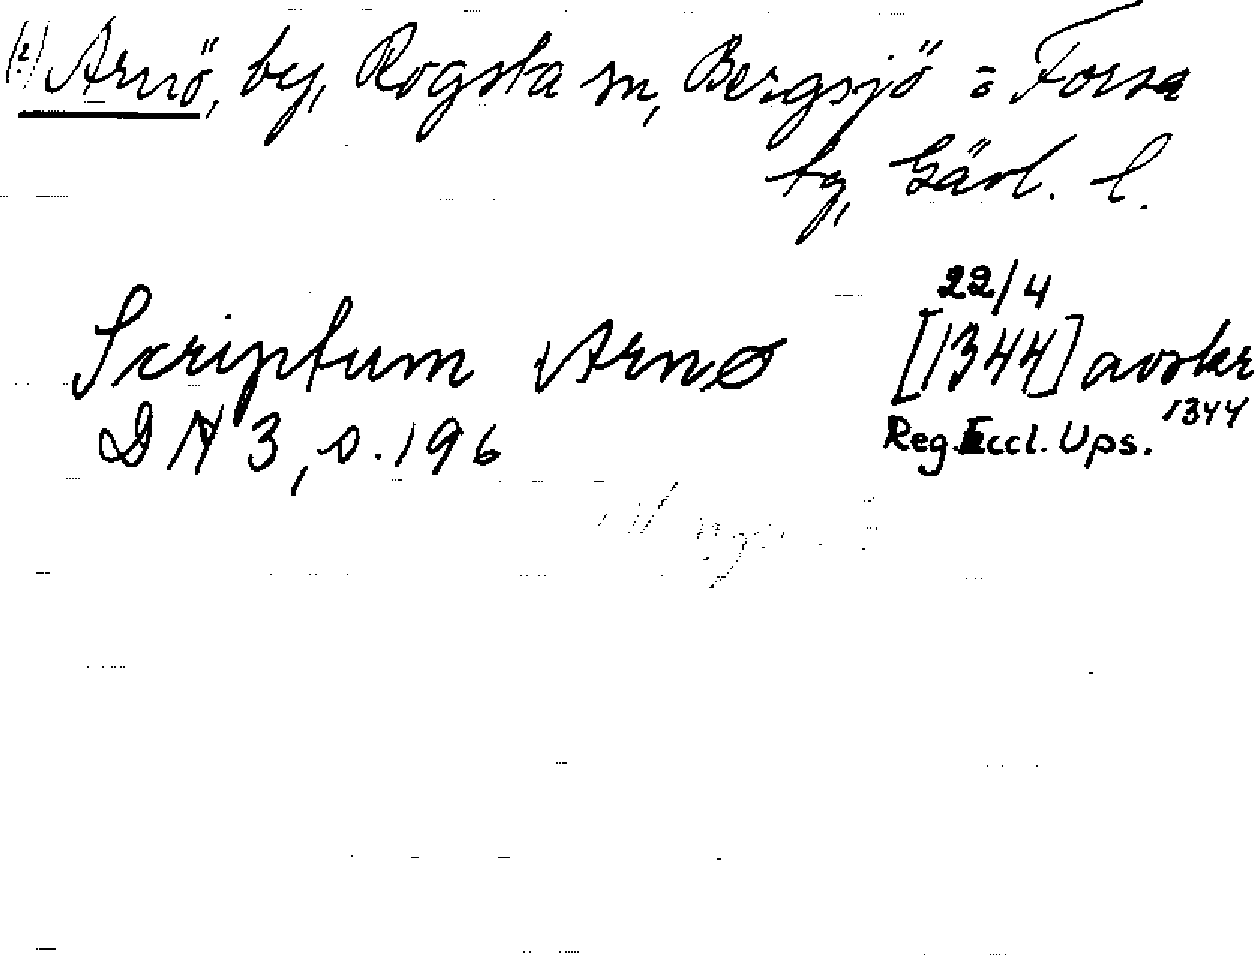 (?) Arnö, by, Rogsta sn, Bergsjö = Forsa
tg, Gävl. l.
22/4
Scriptum Arnø [1344] avskr
1344
DN 3, s. 196 Reg. Eccl. Ups.